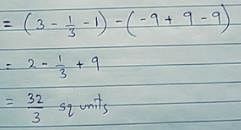 = (3 - 1/3 - 1) - (-9 + 9 - 9)
= 2 - 1/3 + 9
= 32/3 sq units